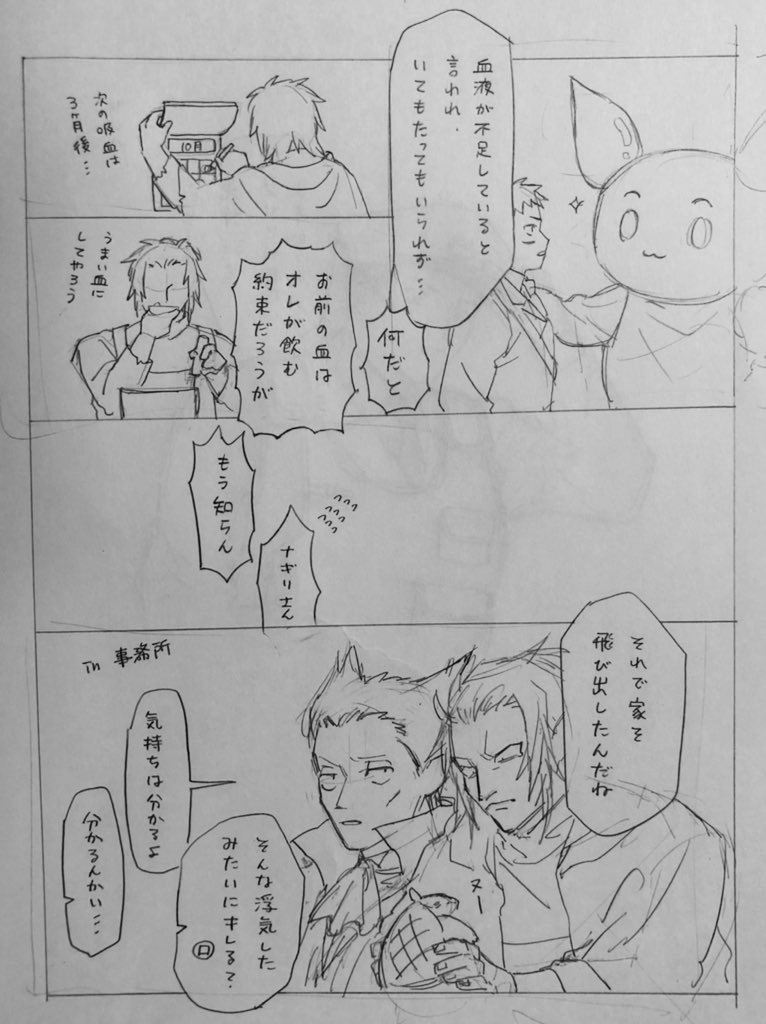 血液が不足していると
言われ、
いてもたってもいられず…
10月
次の吸血は
3ヶ月後…
何だと
お前の血は
オレが飲む
約束だろうが
うまい血に
してやろう
ナギリさん
もう知らん
In 事務所
それで家を
飛び出したんだね
ヌー
気持ちは分かるよ
そんな浮気した
みたいにキレるて.
ロ
分かるんかい…